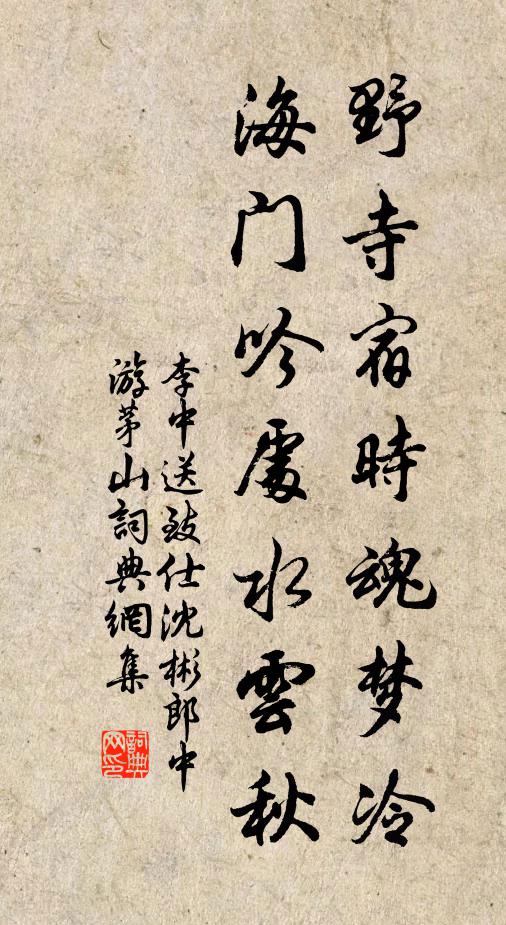 野寺宿時魂梦冷
海门吟處水雲秋
李中送致仕沈彬郎中
游茅山詞典網集
詞典
网印